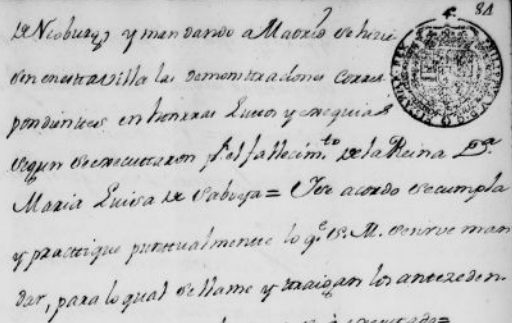 84
de Neoburg, y mandando a Madrid se hiciese
sen en esta villa las demonstraciones corres
pondientes en honrras Lutos y exequias
segun se executaron pr. el fallecimto. de la Reina Da.
Maria Luisa de Saboya = Y se acordo se cumpla
y practique puntualmente lo qe. S. M. se sirve man
dar, para lo qual se llame y traigan los anteceden